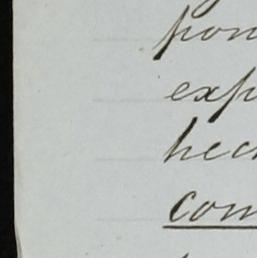 pon
exp
hec
com